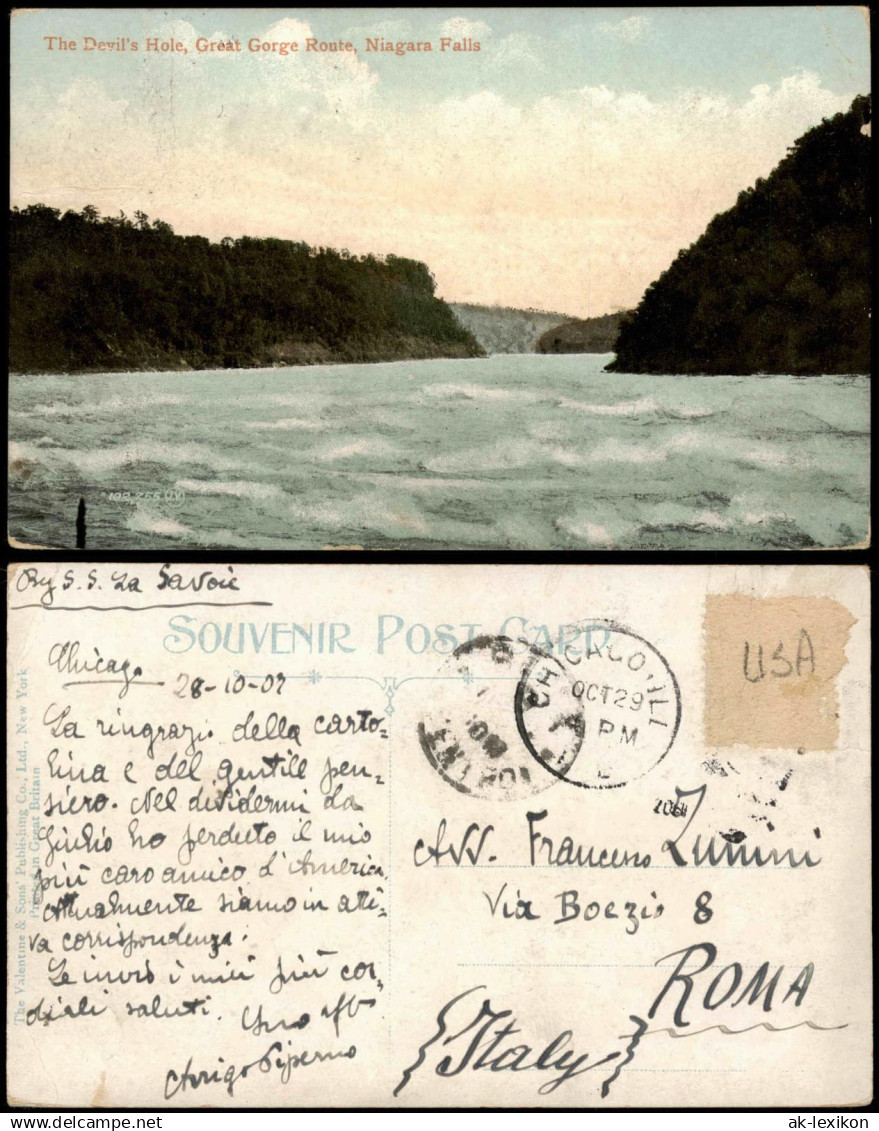 The Devil's Hole, Great Gorge Route, Niagara Falls
By S.S. La Savoie
SOUVENIR POST CARD
Chicago
28-10-07
La ringrazio della carto=
lina e del gentile pen=
siero. Nel dividermi da
Giulio ho perduto il mio
più caro amico d'America
Attualmente siamo in atti=
va corrispondenza.
Le invio i miei più cor=
diali saluti.
Arrigo Piperno
The Valentine & Sons' Publishing Co., Ltd., New York
Printed in Great Britain
CHICAGO, ILL
OCT 29
PM
1907
USA
Avv. Francesco Zunini
Via Boezio 8
ROMA
{Italy}
ak-lexikon